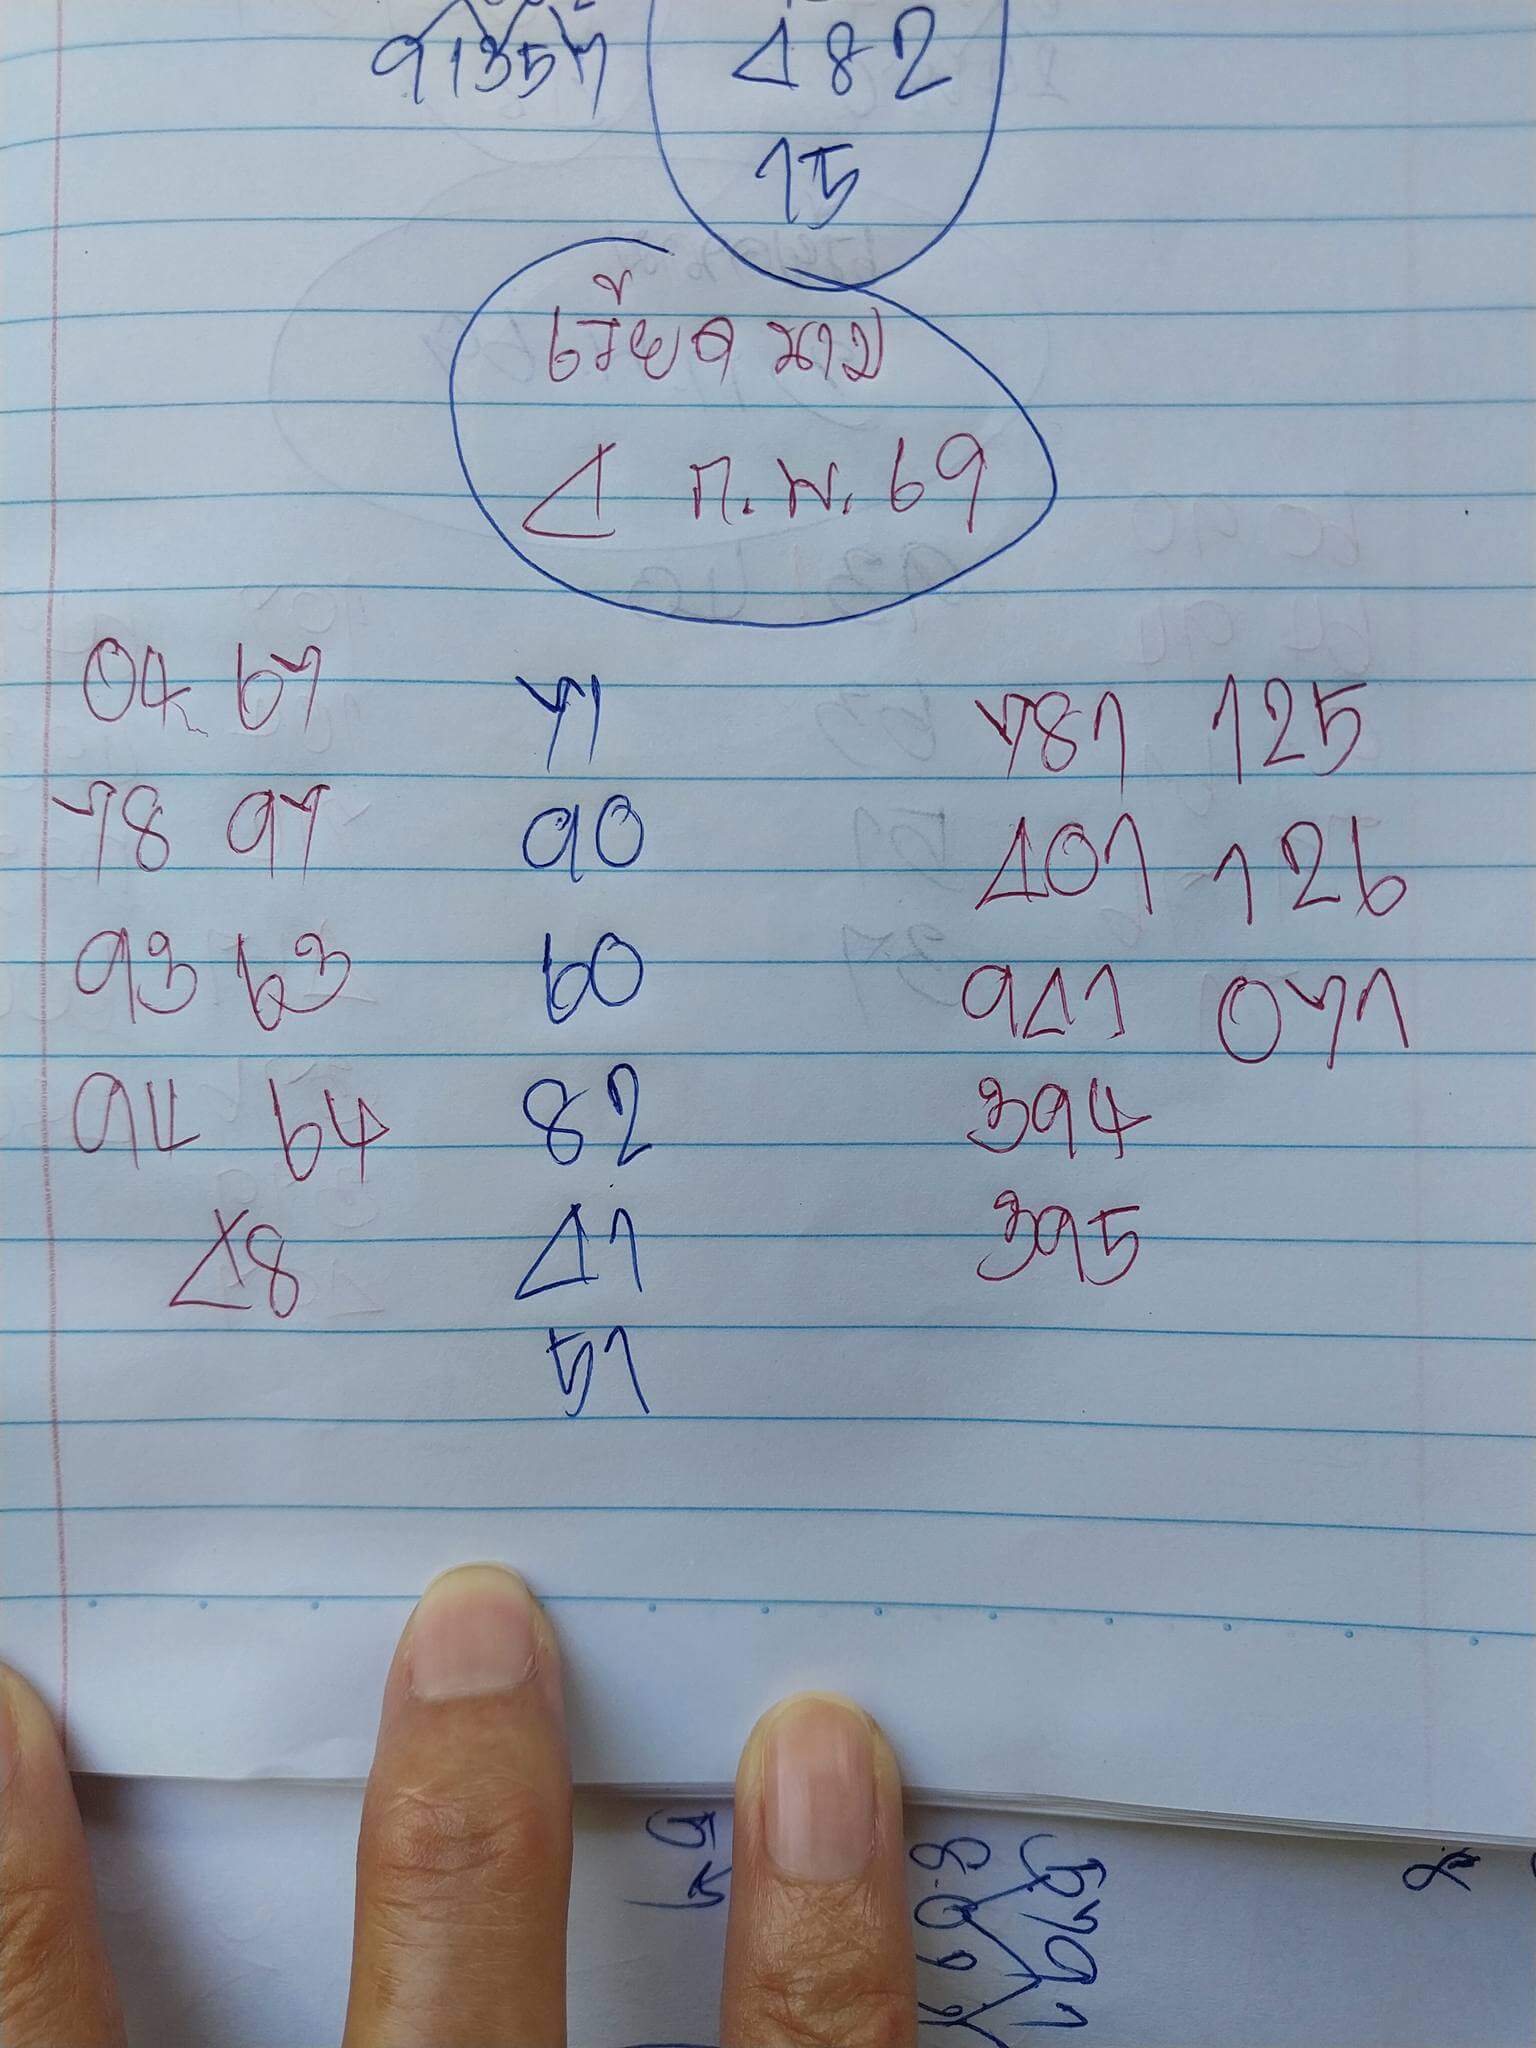 91357 482
15
เวียดนาม
4 ก.พ. 69
04 67 71 781 125
78 97 90 401 126
93 63 60 941 071
94 64 82 394
48 41 395
51